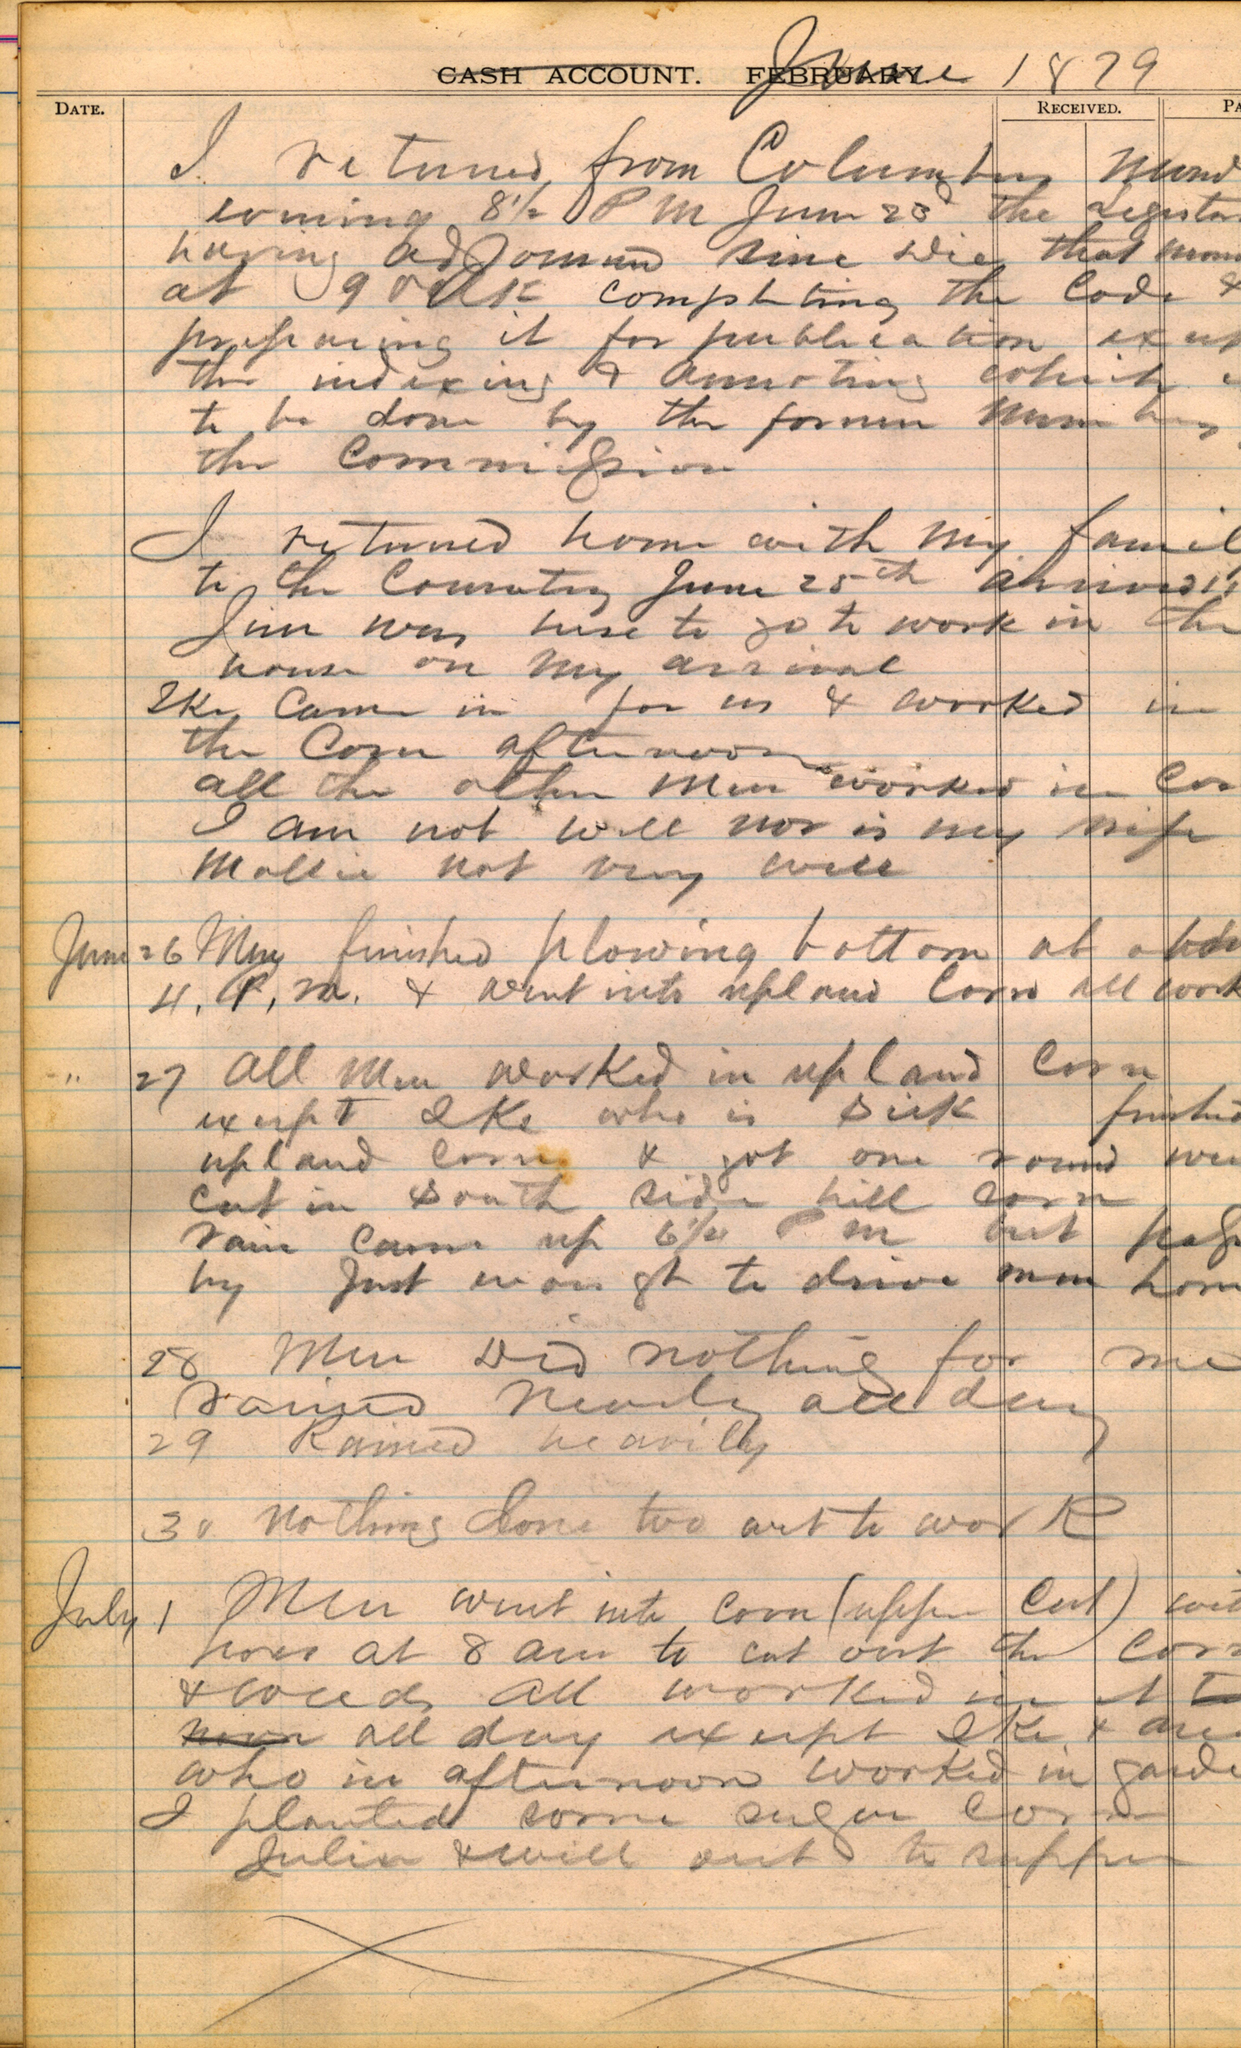 CASH ACCOUNT. FEBRUARY. June 1879
DATE. RECEIVED. PA
I returned from Columbus Mond
evening 8½ P M June 23d the Legistar
having adjourned sine die that morn
at 9 oclk completing the Code &
preparing it for publication except
the indexing & annoting which
to be done by the former Members
the Commission
I returned home with my famil
to the Country June 25th arrived
Jim was here to go to work in the
house on my arrival
Ike came in for us & worked in
the Corn afternoon
all the other men worked in Cor
I am not well nor is my wife
Mollie not very well
June 26 Men finished plowing bottom at abou
4. P. M. & went into upland Corn all work
" 27 All Men worked in upland Corn
except Ike who is sick finished
upland corn & got one round
cut in South side hill corn
rain came up 6¼ P M but
by Just enough to drive men hom
28 Men did nothing for me
rained nearly all day
29 Rained heavily
30 Nothing done two wet to work
July 1 Men went into corn (upper Cut) wit
hoes at 8 am to cut out the Corn
& weeds All worked in it to
noon all day except Ike &
who in afternoon worked in garde
I planted some sugar Corn
Julia & Will out to supper